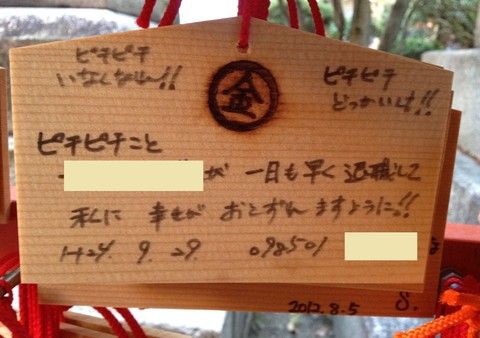 ピチピチ
いなくなれ〜!!
金
ピチピチ
どっかいけ!!
ピチピチこと
が 一日も早く退職して
私に 幸せが おとずれますように!!
H24. 9. 29. 098501
2012.8.5 S.